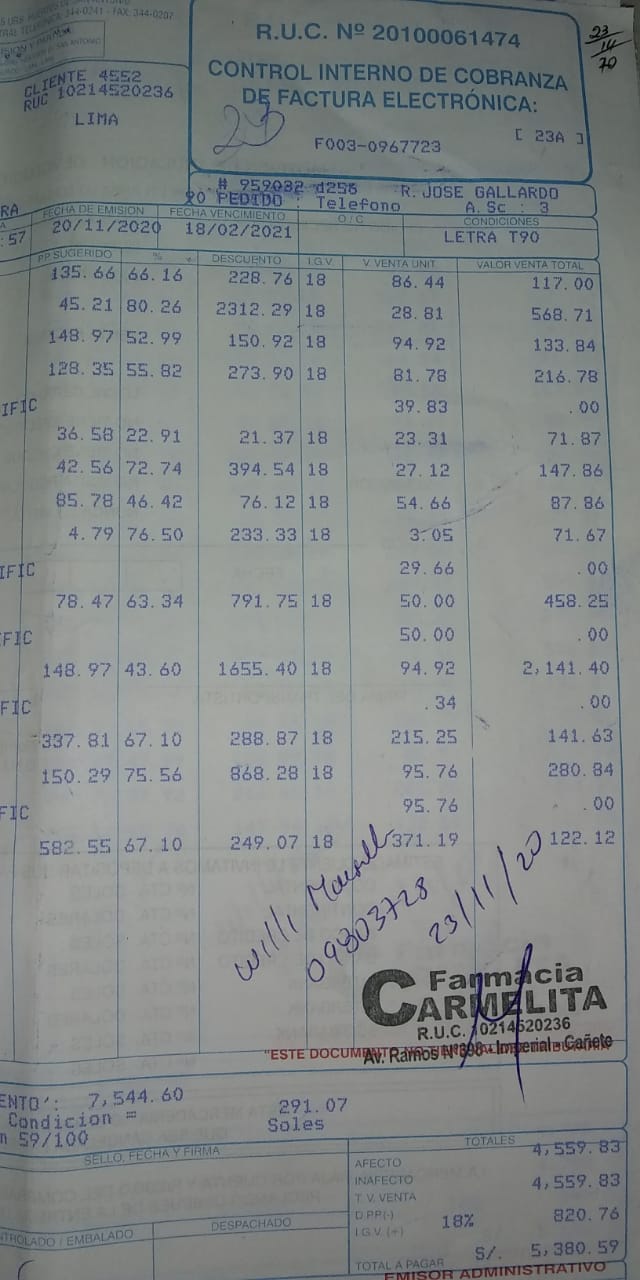 TELEFONICA: 344-0241 - FAX: 344-0207
CLIENTE 4552
RUC 10214520236
LIMA
R.U.C. Nº 20100061474
CONTROL INTERNO DE COBRANZA
DE FACTURA ELECTRÓNICA:
F003-0967723 [ 23A ]
23
# 959032 d256 R. JOSE GALLARDO
PEDIDO : Telefono A. Sc : 3
RA FECHA DE EMISION FECHA VENCIMIENTO O / C CONDICIONES
:57 20/11/2020 18/02/2021 LETRA T90
PP SUGERIDO % DESCUENTO I.G.V. V. VENTA UNIT. VALOR VENTA TOTAL
135.66 66.16 228.76 18 86.44 117.00
45.21 80.26 2312.29 18 28.81 568.71
148.97 52.99 150.92 18 94.92 133.84
128.35 55.82 273.90 18 81.78 216.78
IFIC 39.83 .00
36.58 22.91 21.37 18 23.31 71.87
42.56 72.74 394.54 18 27.12 147.86
85.78 46.42 76.12 18 54.66 87.86
4.79 76.50 233.33 18 3.05 71.67
IFIC 29.66 .00
78.47 63.34 791.75 18 50.00 458.25
FIC 50.00 .00
148.97 43.60 1655.40 18 94.92 2,141.40
FIC .34 .00
337.81 67.10 288.87 18 215.25 141.63
150.29 75.56 868.28 18 95.76 280.84
FIC 95.76 .00
582.55 67.10 249.07 18 371.19 122.12
Willi
09803728
23/11/20
Farmacia
CARMELITA
R.U.C. 10214520236
Av. Ramos Nº 398 - Imperial - Cañete
"ESTE DOCUMENTO NO
ENTO: 7,544.60 291.07
Condicion = Soles
n 59/100
SELLO, FECHA Y FIRMA TOTALES
AFECTO 4,559.83
INAFECTO
T. V. VENTA 4,559.83
D.PP(-)
I.G.V. (+) 18% 820.76
TOTAL A PAGAR S/. 5,380.59
NTROLADO / EMBALADO DESPACHADO
EMISOR ADMINISTRATIVO